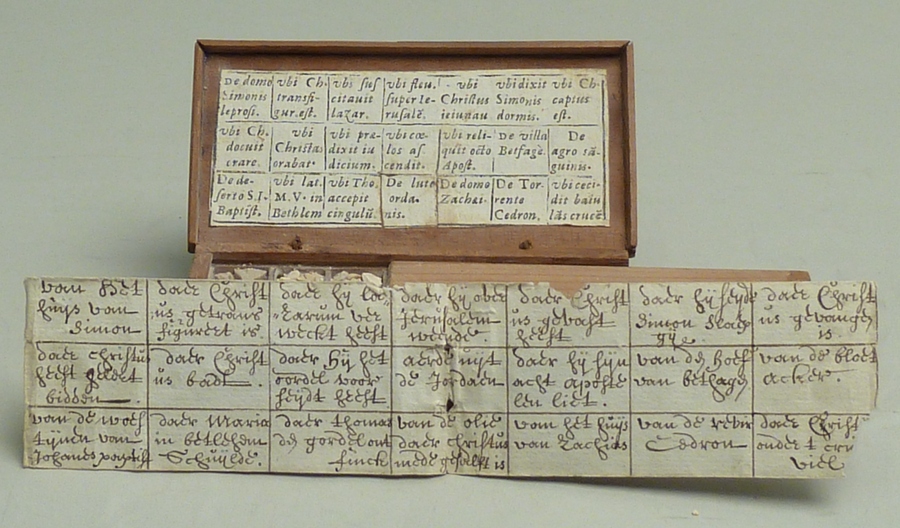 De domo
Simonis
leprosi.
vbi Ch.
transfi-
gur.est.
vbi sus
citauit
lazar.
vbi fleu.
super Ie-
rusalē.
vbi
Christus
ieiunau
vbi dixit
Simonis
dormis.
vbi Ch.
captus
est.
vbi Ch.
docuit
orare.
vbi
Christus
orabat.
vbi præ-
dixit iu
dicium.
vbi cœ-
los as
cendit.
vbi reli-
quit octo
Apost.
De villa
Betfage.
De
agro sā-
guinis.
De de-
serto S.I.
Baptist.
vbi lat.
M.V. in
Bethlem
vbi Tho.
accepit
cingulū.
De luto
orda-
nis.
De domo
Zachei.
De Tor-
rente
Cedron.
vbi ceci-
dit baiu
lās crucē
van het
huijs van
Simon
daer Christ
us getrans
figureet is
daer hij
weckt heeft
daer hij over
Jerusalem
weende.
daer Christ
us gevast
heeft
daer hij seijde
Simon
daer Christ
us gevangen
is
daer christus
heeft
bidden
daer Christ
us badt.
daer hij het
oordel voor
seijdt heeft
aerde uijt
de Jordaen
daer hij sijn
acht aposte
len liet.
van den hoef
van bethage
van de bloet
acker.
van de woes
tijnen van
Johannes
daer Maria
in betlehem
Schuijlde.
daer thomas
den gordel ont
finck
van de olie
daer christus
mede gesalft is
vom het huijs
van Zachias
van de
Cedron
daer Christ
onder t
viel